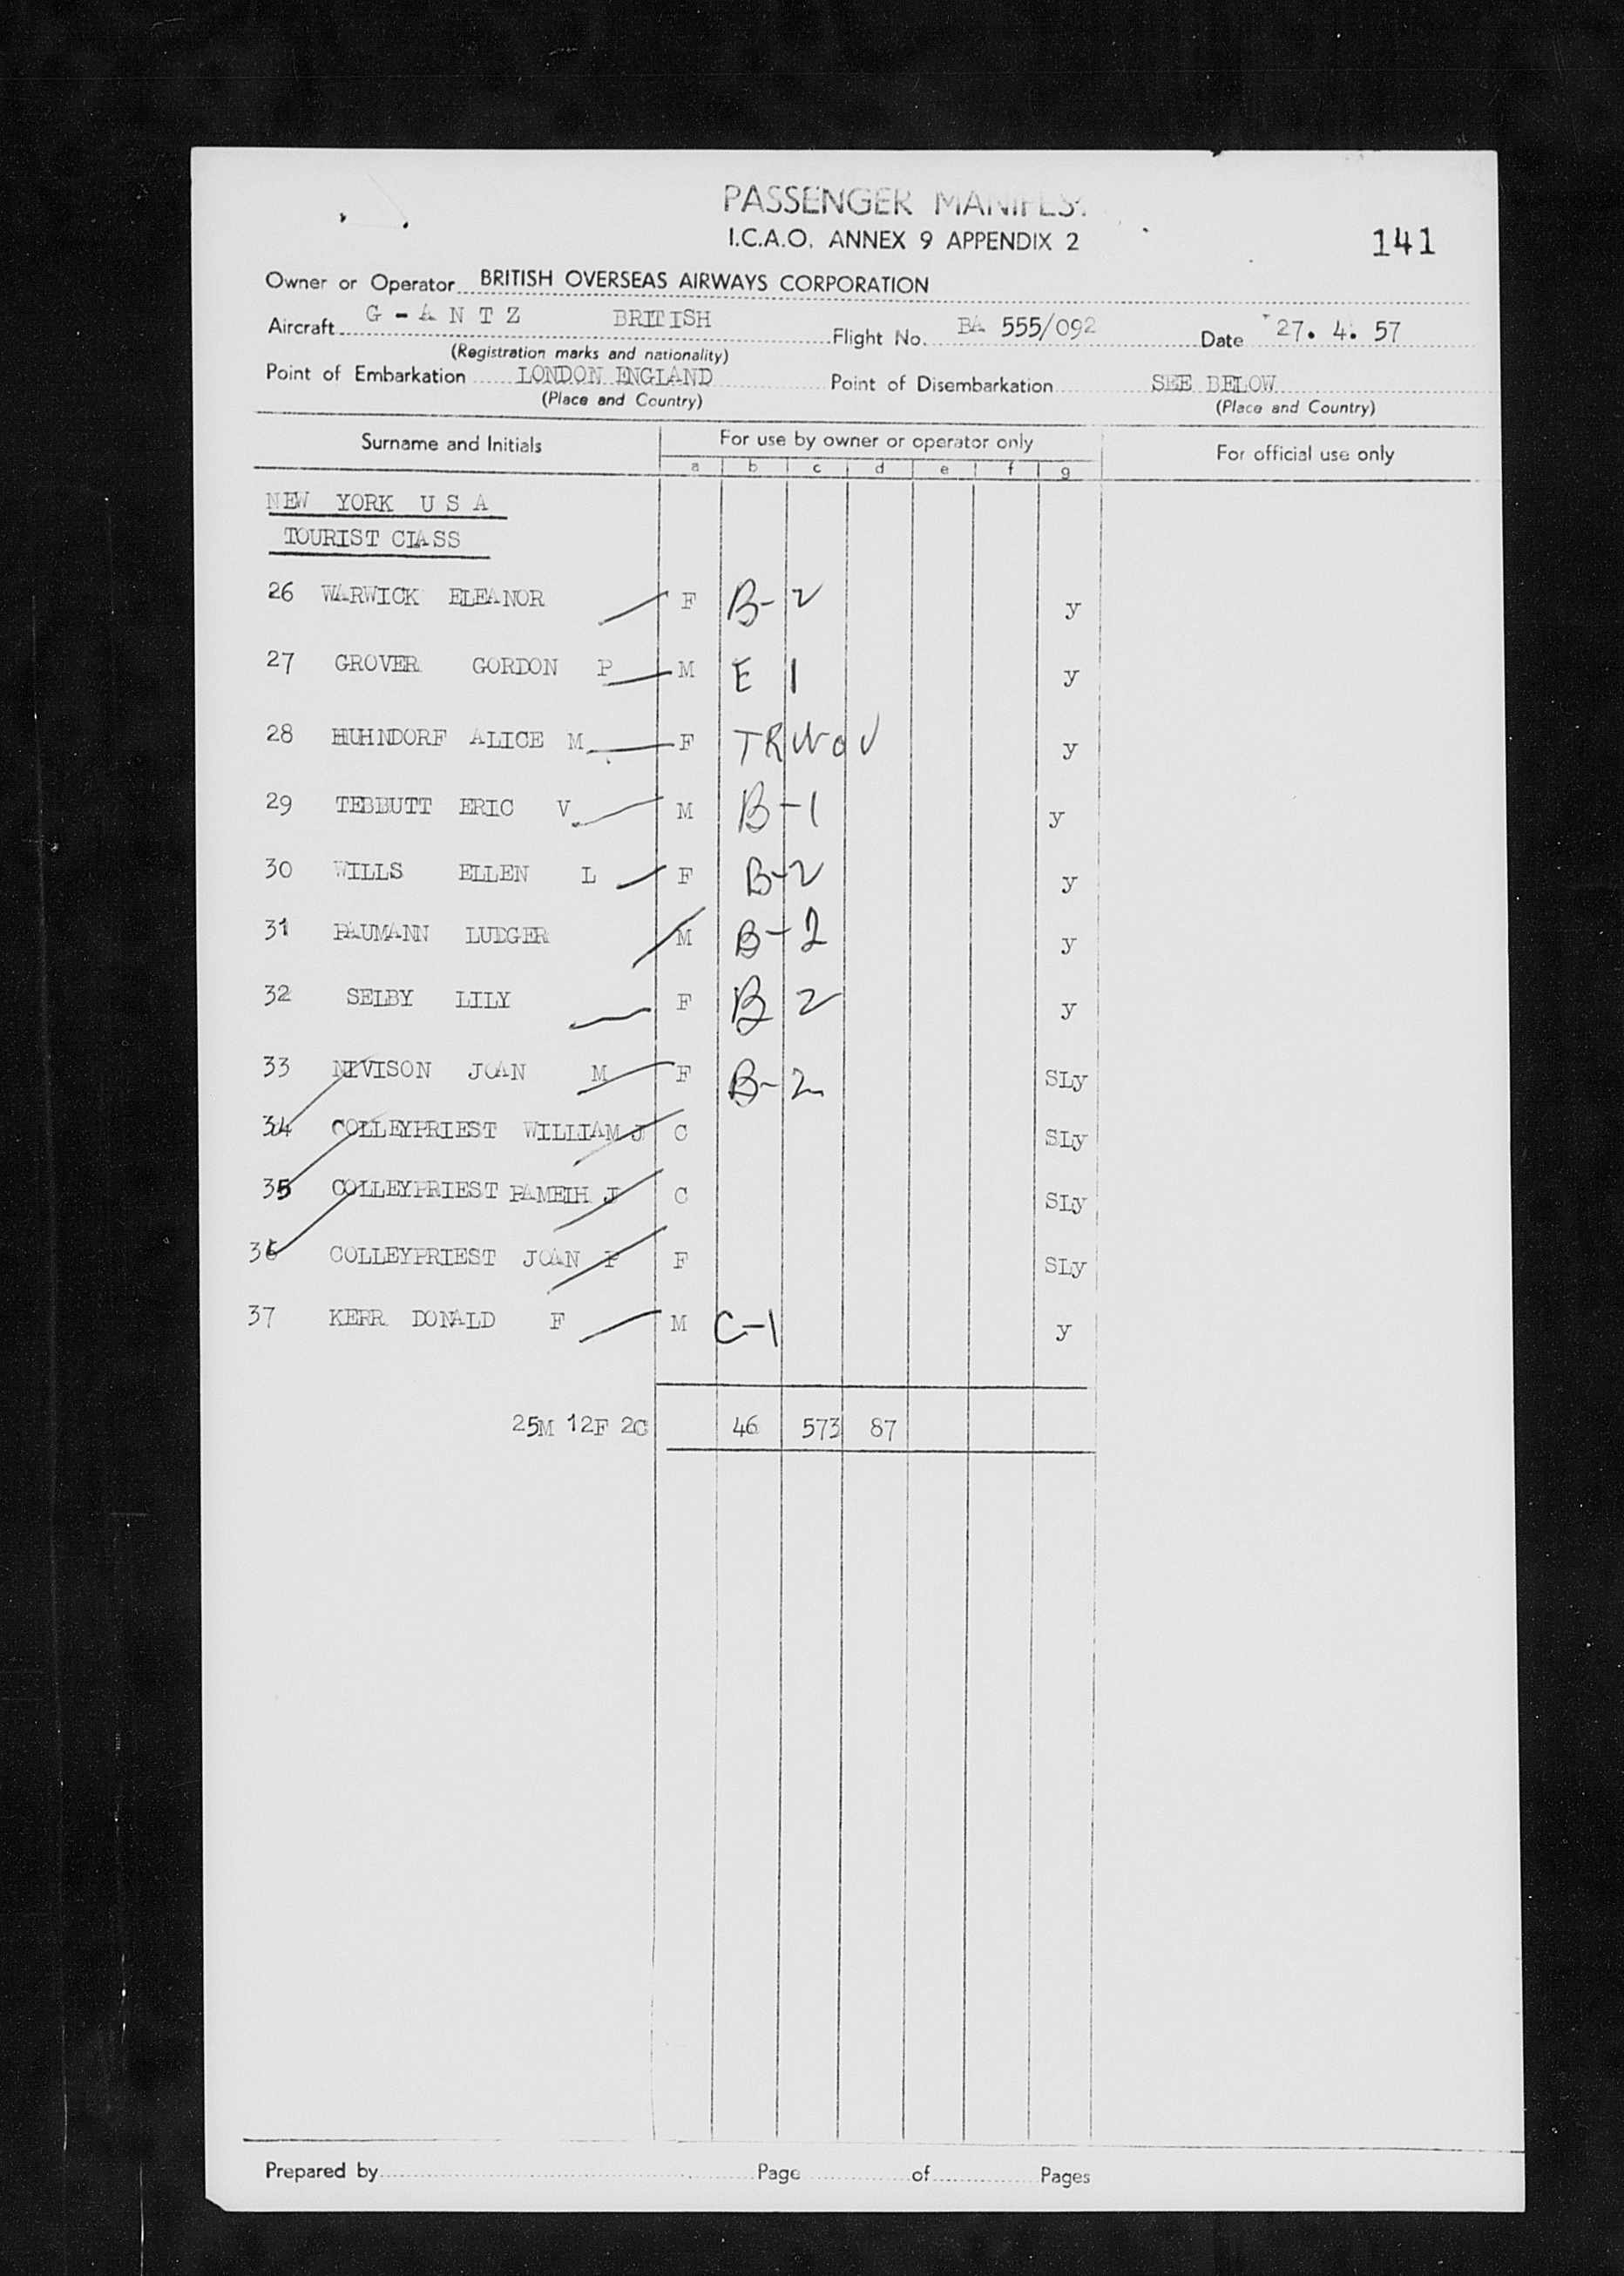 PASSENGER MANIFEST
I.C.A.O. ANNEX 9 APPENDIX 2
141
Owner or Operator BRITISH OVERSEAS AIRWAYS CORPORATION
Aircraft G - A N T Z BRITISH Flight No. BA 555/092 Date 27. 4. 57
(Registration marks and nationality)
Point of Embarkation LONDON ENGLAND Point of Disembarkation SEE BELOW
(Place and Country) (Place and Country)
Surname and Initials For use by owner or operator only For official use only
a b c d e f g
NEW YORK U S A
TOURIST CLASS
26 WARWICK ELEANOR F B-2 y
27 GROVER GORDON P M E 1 y
28 HUHNDORF ALICE M F y
29 TEBBUTT ERIC V M B-1 y
30 WILLS ELLEN L F B-2 y
31 PAUMANN LUDGER M B-2 y
32 SELBY LILY F B 2 y
33 NIVISON JOAN M F B-2 SLy
34 COLLEYPRIEST WILLIAM J C SLy
35 COLLEYPRIEST J C SLy
36 COLLEYPRIEST JOAN P F SLy
37 KERR DONALD F M C-1 y
25M 12F 2C 46 573 87
Prepared by Page of Pages